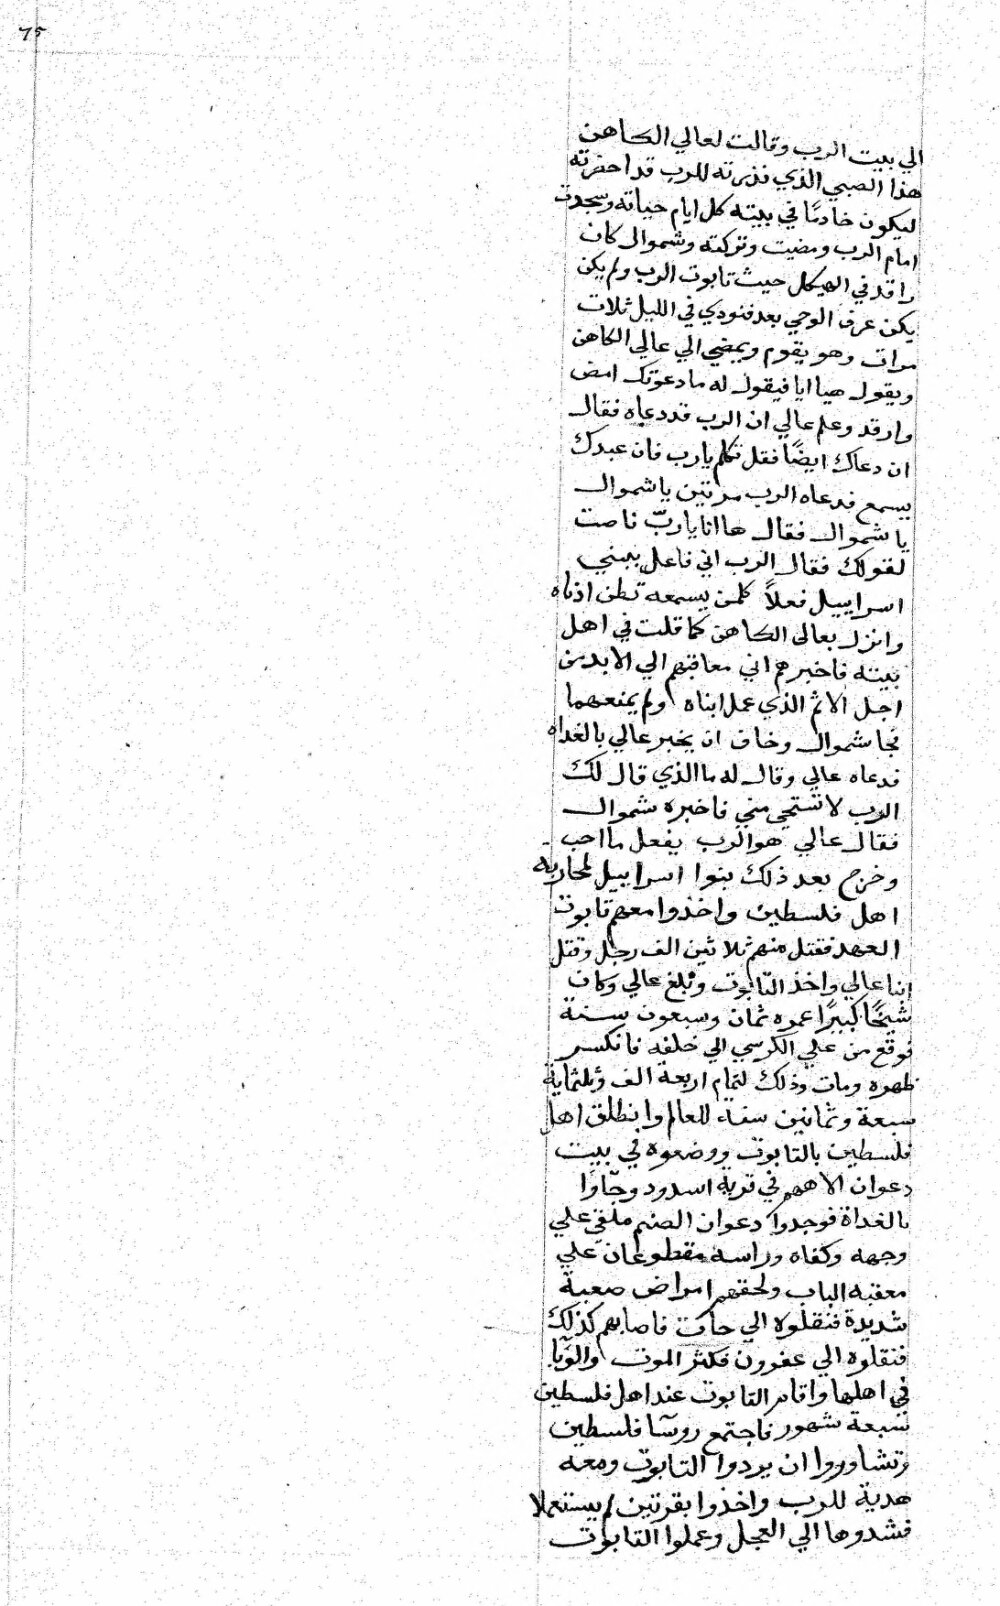 75
الي بيت الرب وقالت لعالي الكاهن
هذا الصبي الذي نذرته للرب قد احضرته
ليكون خادمًا في بيته كل ايام حياته وسجدت
امام الرب ومضيت وتركته وشموال كان
راقد في الهيكل حيث تابوت الرب ولم يكن
يكن عرف الوحي بعد فنودي في الليل ثلات
مرات وهو يقوم ويمضي الي عالي الكاهن
ويقول هيا ايا فيقول له ما دعوتك امض
وارقد وعلم عالي ان الرب قد دعاه فقال
ان دعاك ايضًا فقل تكلم يارب فان عبدك
يسمع فدعاه الرب مرتين يا شموال
يا شموال فقال ها انا يا ربّ ناصت
لقولك فقال الرب اني فاعل ببني
اسراييل فعلاً كلمن يسمعه تطن اذناه
وانزل بعالى الكاهن كما قلت في اهل
بيته فاخبرهم اني معاقبهم الي الابد من
اجل الاثم الذي عمل ابناه ولم يمنعهما
فجا شموال وخاف ان يخبر عالي بالغداه
فدعاه عالي وقال له ما الذي قال لك
الرب لا تستحي مني فاخبره شموال
فقال عالي هو الرب يفعل ما احب
وخرج بعد ذلك بنوا اسراييل لمحاربه
اهل فلسطين واخذوا معهم تابوت
العهد فقتل منهم ثلاثين الف رجل وقتل
ابنا عالي واخذ التابوت وبلغ عالي وكان
شيخًا كبيرًا عمره ثمان وسبعون سنة
فوقع من علي الكرسي الي خلفه فانكسر
ظهره ومات وذلك لتمام اربعة الف وثلثماية
سبعة وثمانين سنة للعالم وانطلق اهل
فلسطين بالتابوت ووضعوه في بيت
دعوان الاههم في قرية اسدود وجآوا
بالغداة فوجدوا دعوان الصنم ملقي علي
وجهه وكفاه وراسه مقطوعان علي
معقبه الباب ولحقهم امراض صعبة
شديدة فنقلوه الي جات فاصابهم كذلك
فنقلوه الي عفرون فكثر الموت والوبا
في اهلها واقام التابوت عند اهل فلسطين
سبعة شهور فاجتمع روسآ فلسطين
وتشاوروا ان يردوا التابوت ومعه
هدية للرب واخذوا بقرتين لم يستعملا
فشدوها الي العجل وعملوا التابوت